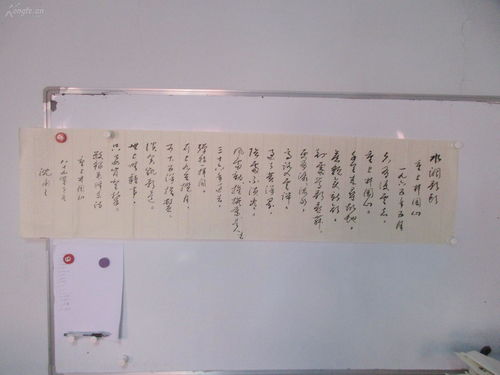 Kongfz.cn
水调歌头
重上井冈山
一九六五年五月
久有凌云志，
重上井冈山。
千里来寻故地，
旧貌变新颜。
到处莺歌燕舞，
更有潺潺流水，
高路入云端。
过了黄洋界，
险处不须看。
风雷动，旌旗奋，是人寰。
三十八年过去，
弹指一挥间。
可上九天揽月，
可下五洋捉鳖，
谈笑凯歌还。
世上无难事，
只要肯登攀。
敬录毛泽东词
重上井冈山